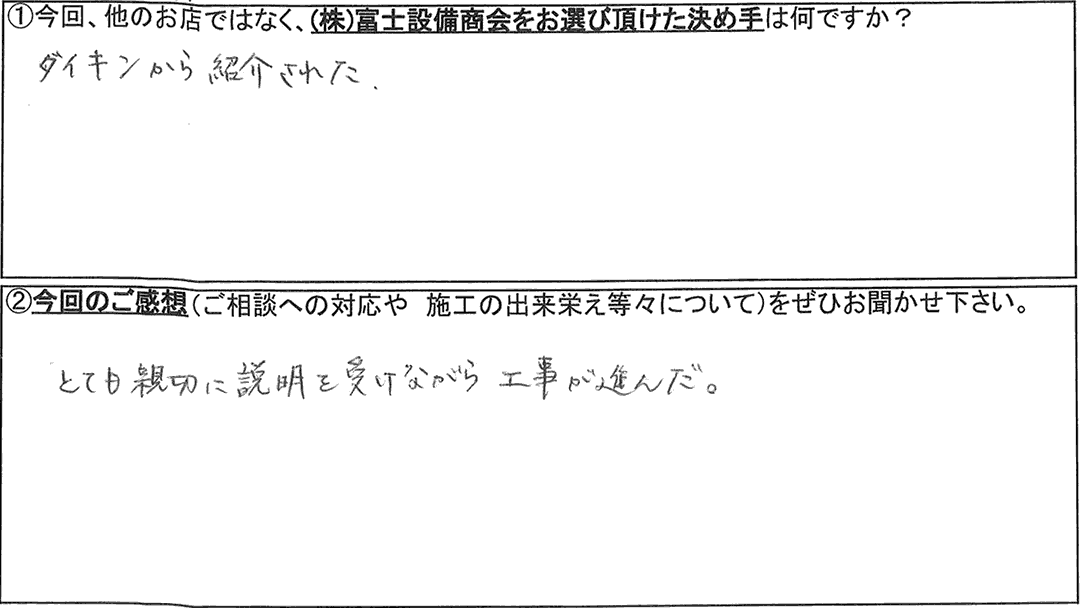 ①今回、他のお店ではなく、(株)富士設備商会をお選び頂けた決め手は何ですか？
ダイキンから紹介された.
②今回のご感想(ご相談への対応や　施工の出来栄え等々について)をぜひお聞かせ下さい。
とても親切に説明を受けながら 工事が進んだ。